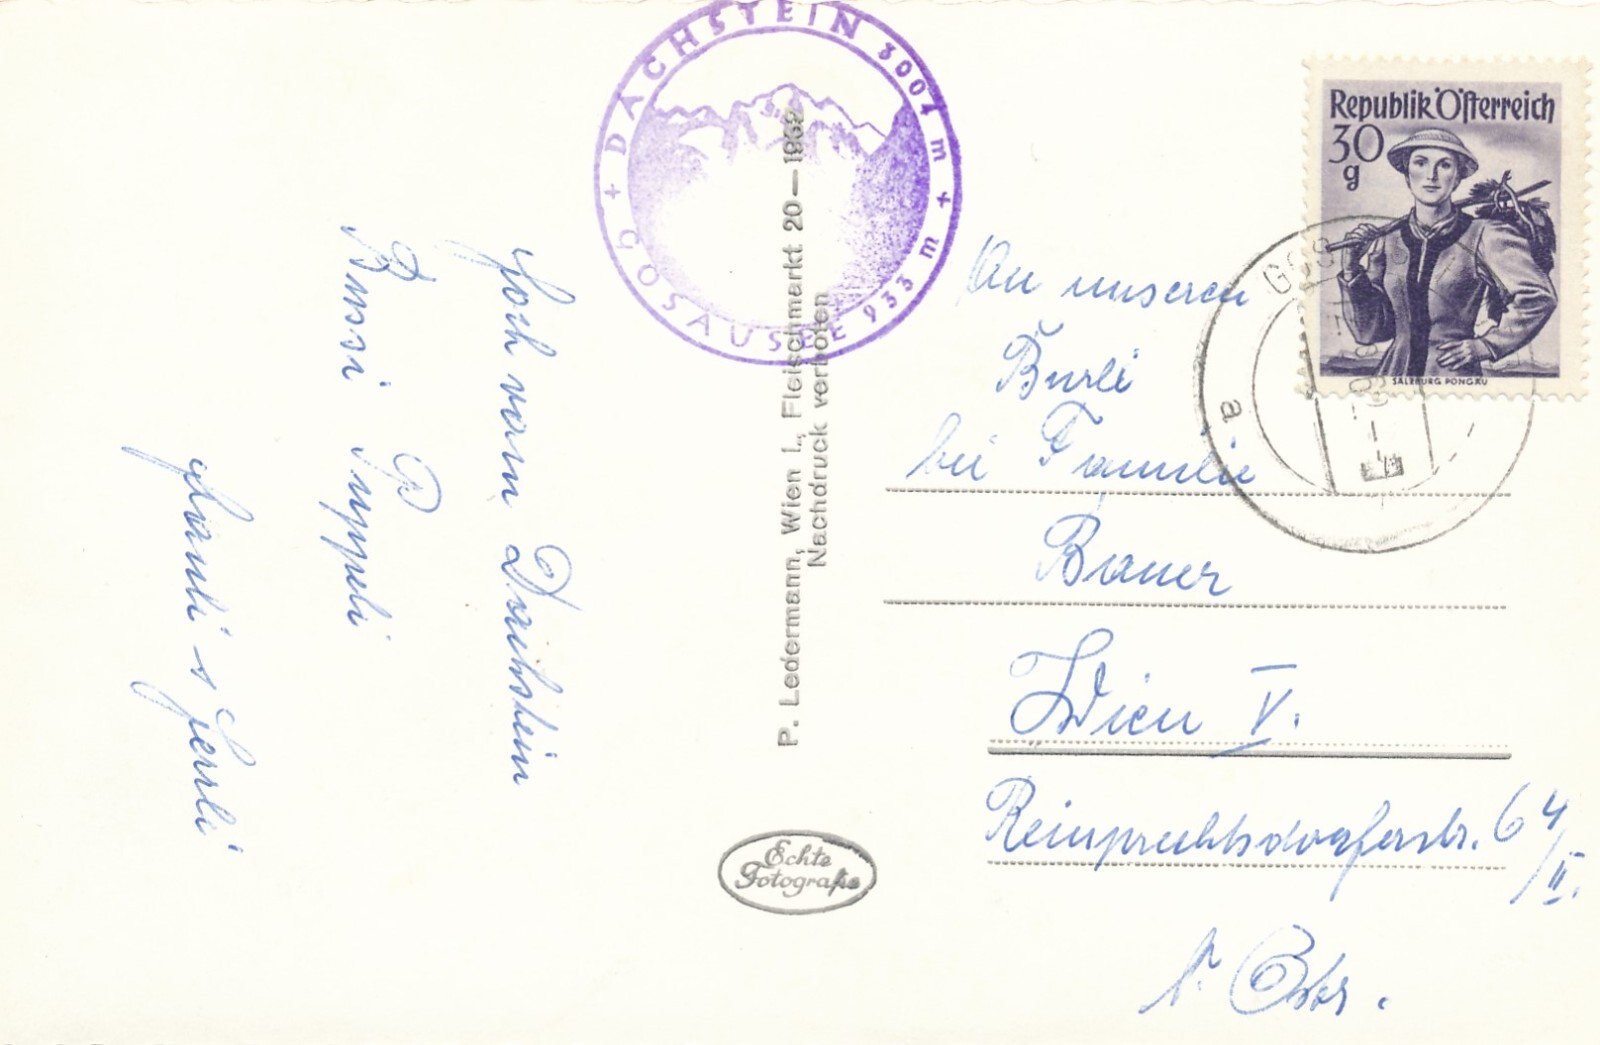 Hoch vom Dachstein
Bussi Puppeli
Hansli's Ferdi
DACHSTEIN 3004 m
GOSAUSEE 933 m
P. Ledermann, Wien I., Fleischmarkt 20—1962
Nachdruck verboten
Echte
Fotografie
Republik Österreich
30
g
SALZBURG PONGAU
GOS
a
An unseren
Burli
bei Familie
Bauer
Wien V.
Reinprechtsdorferstr. 64/II.